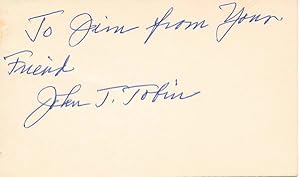 To Jim from Your
Friend
John T. Tobin